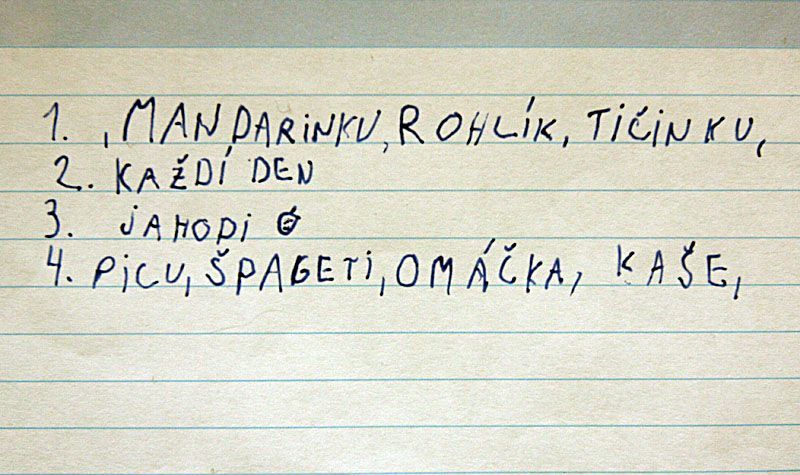 1. , MANDARINKU, ROHLÍK, TIČINKU,
2. KAŽDÍ DEN
3. JAHODI
4. PICU, ŠPAGETI, OMÁČKA, KAŠE,